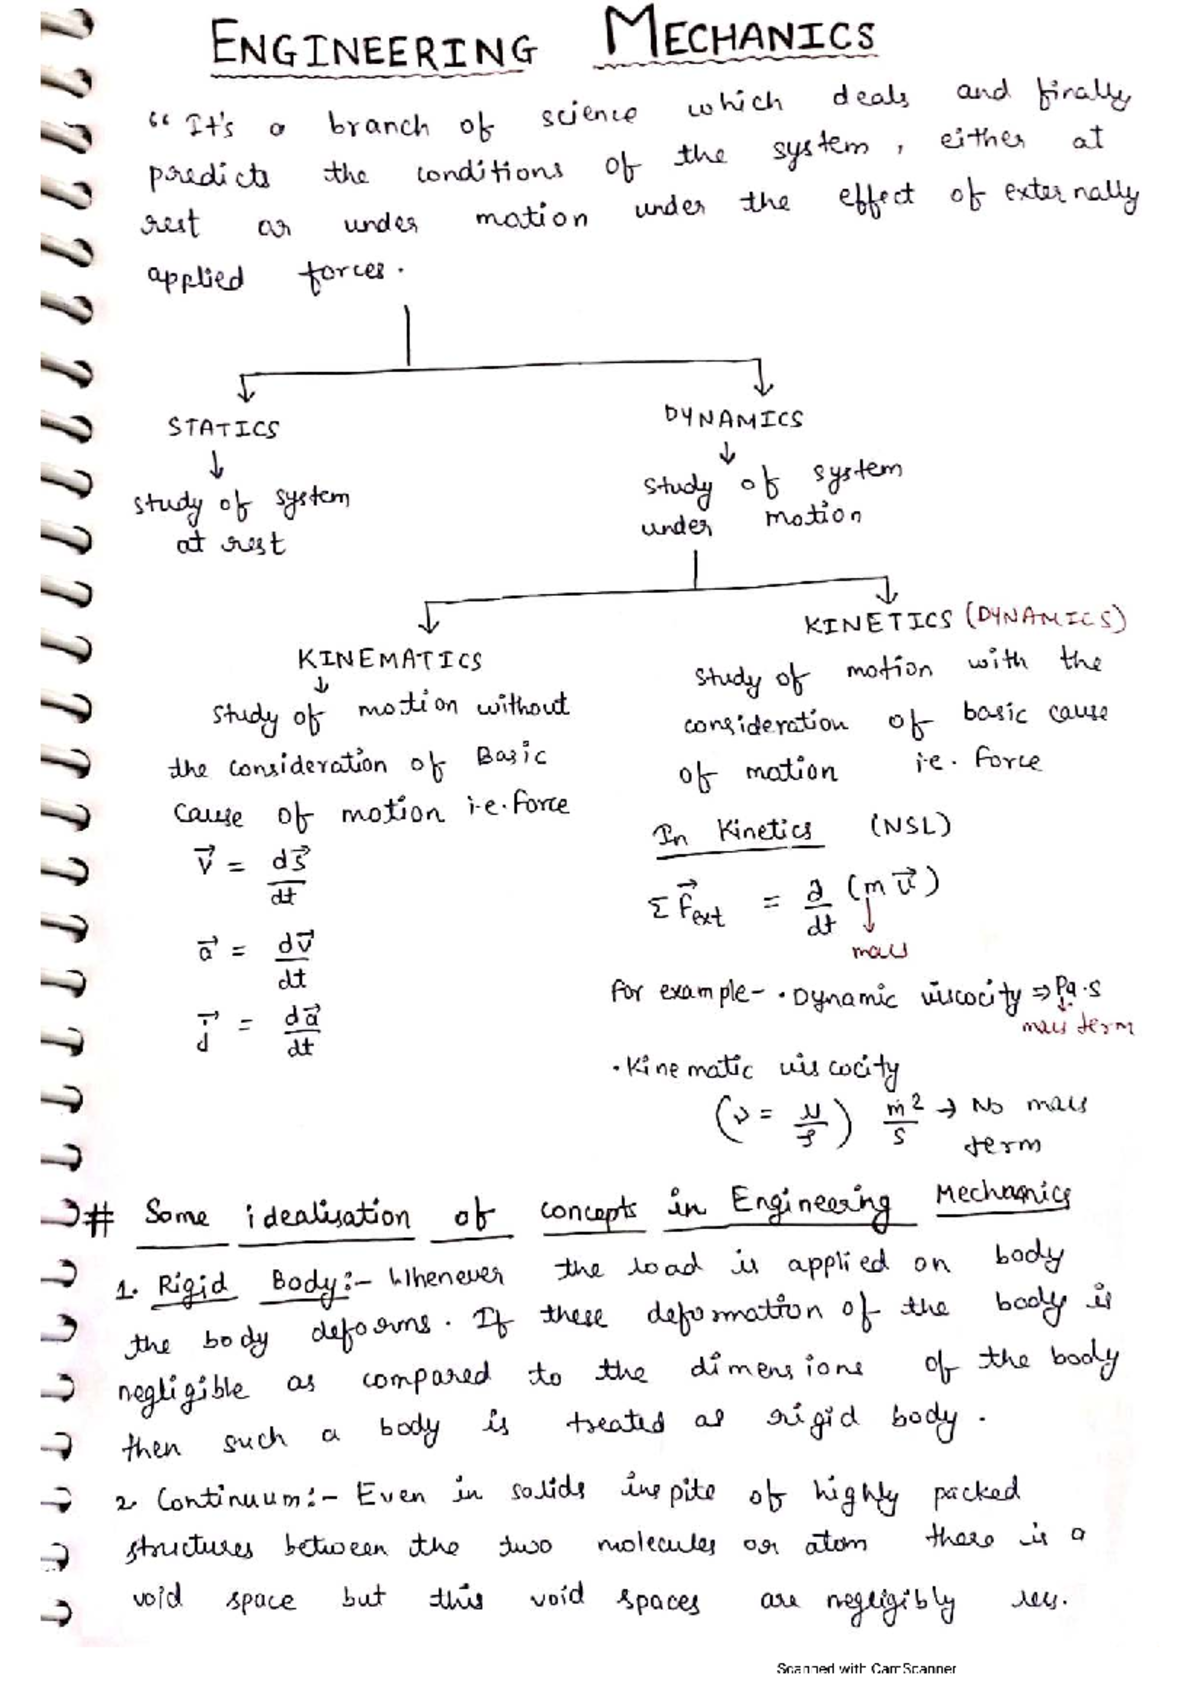 ENGINEERING MECHANICS
"It's a branch of science which deals and finally
predicts the conditions of the system, either at
rest or under motion under the effect of externally
applied forces.
STATICS
DYNAMICS
study of system
at rest
study of system
under motion
KINEMATICS
KINETICS (DYNAMICS)
study of motion without
the consideration of Basic
cause of motion i.e. force
study of motion with the
consideration of basic cause
of motion i.e. force
v⃗ = ds⃗/dt
a⃗ = dv⃗/dt
j⃗ = da⃗/dt
In Kinetics (NSL)
Σ F⃗ext = ∂/dt (m v⃗)
mass
for example- • Dynamic viscocity ⇒ Pa.s
mass term
• Kinematic viscocity
(ν = μ/ρ) m²/s → No mass
term
# Some idealisation of concepts in Engineering Mechanics
1. Rigid Body:- Whenever the load is applied on body
the body deforms. If these deformation of the body is
negligible as compared to the dimensions of the body
then such a body is treated as rigid body.
2. Continuum:- Even in solids inspite of highly packed
structures between the two molecules or atom there is a
void space but this void spaces are negligibly less.
Scanned with CamScanner